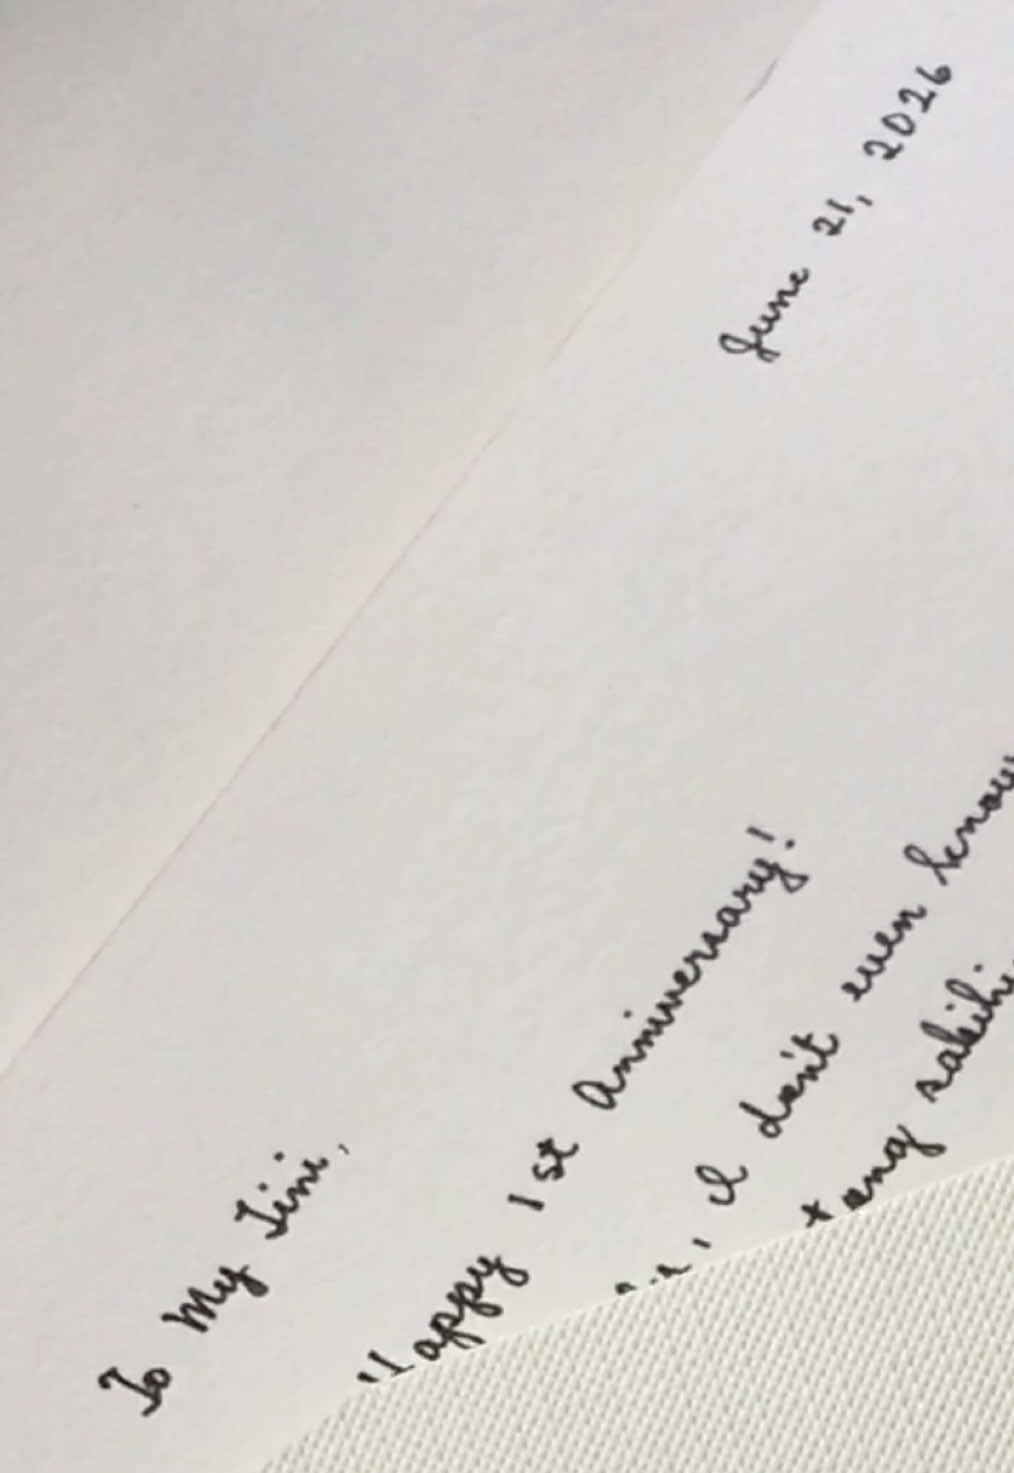 June 21, 2026
To My Jini,
Happy 1st Anniversary!
, I don't even know
sabihi